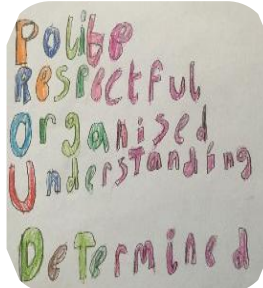 Polite
Respectful
Organised
Understanding
Determined